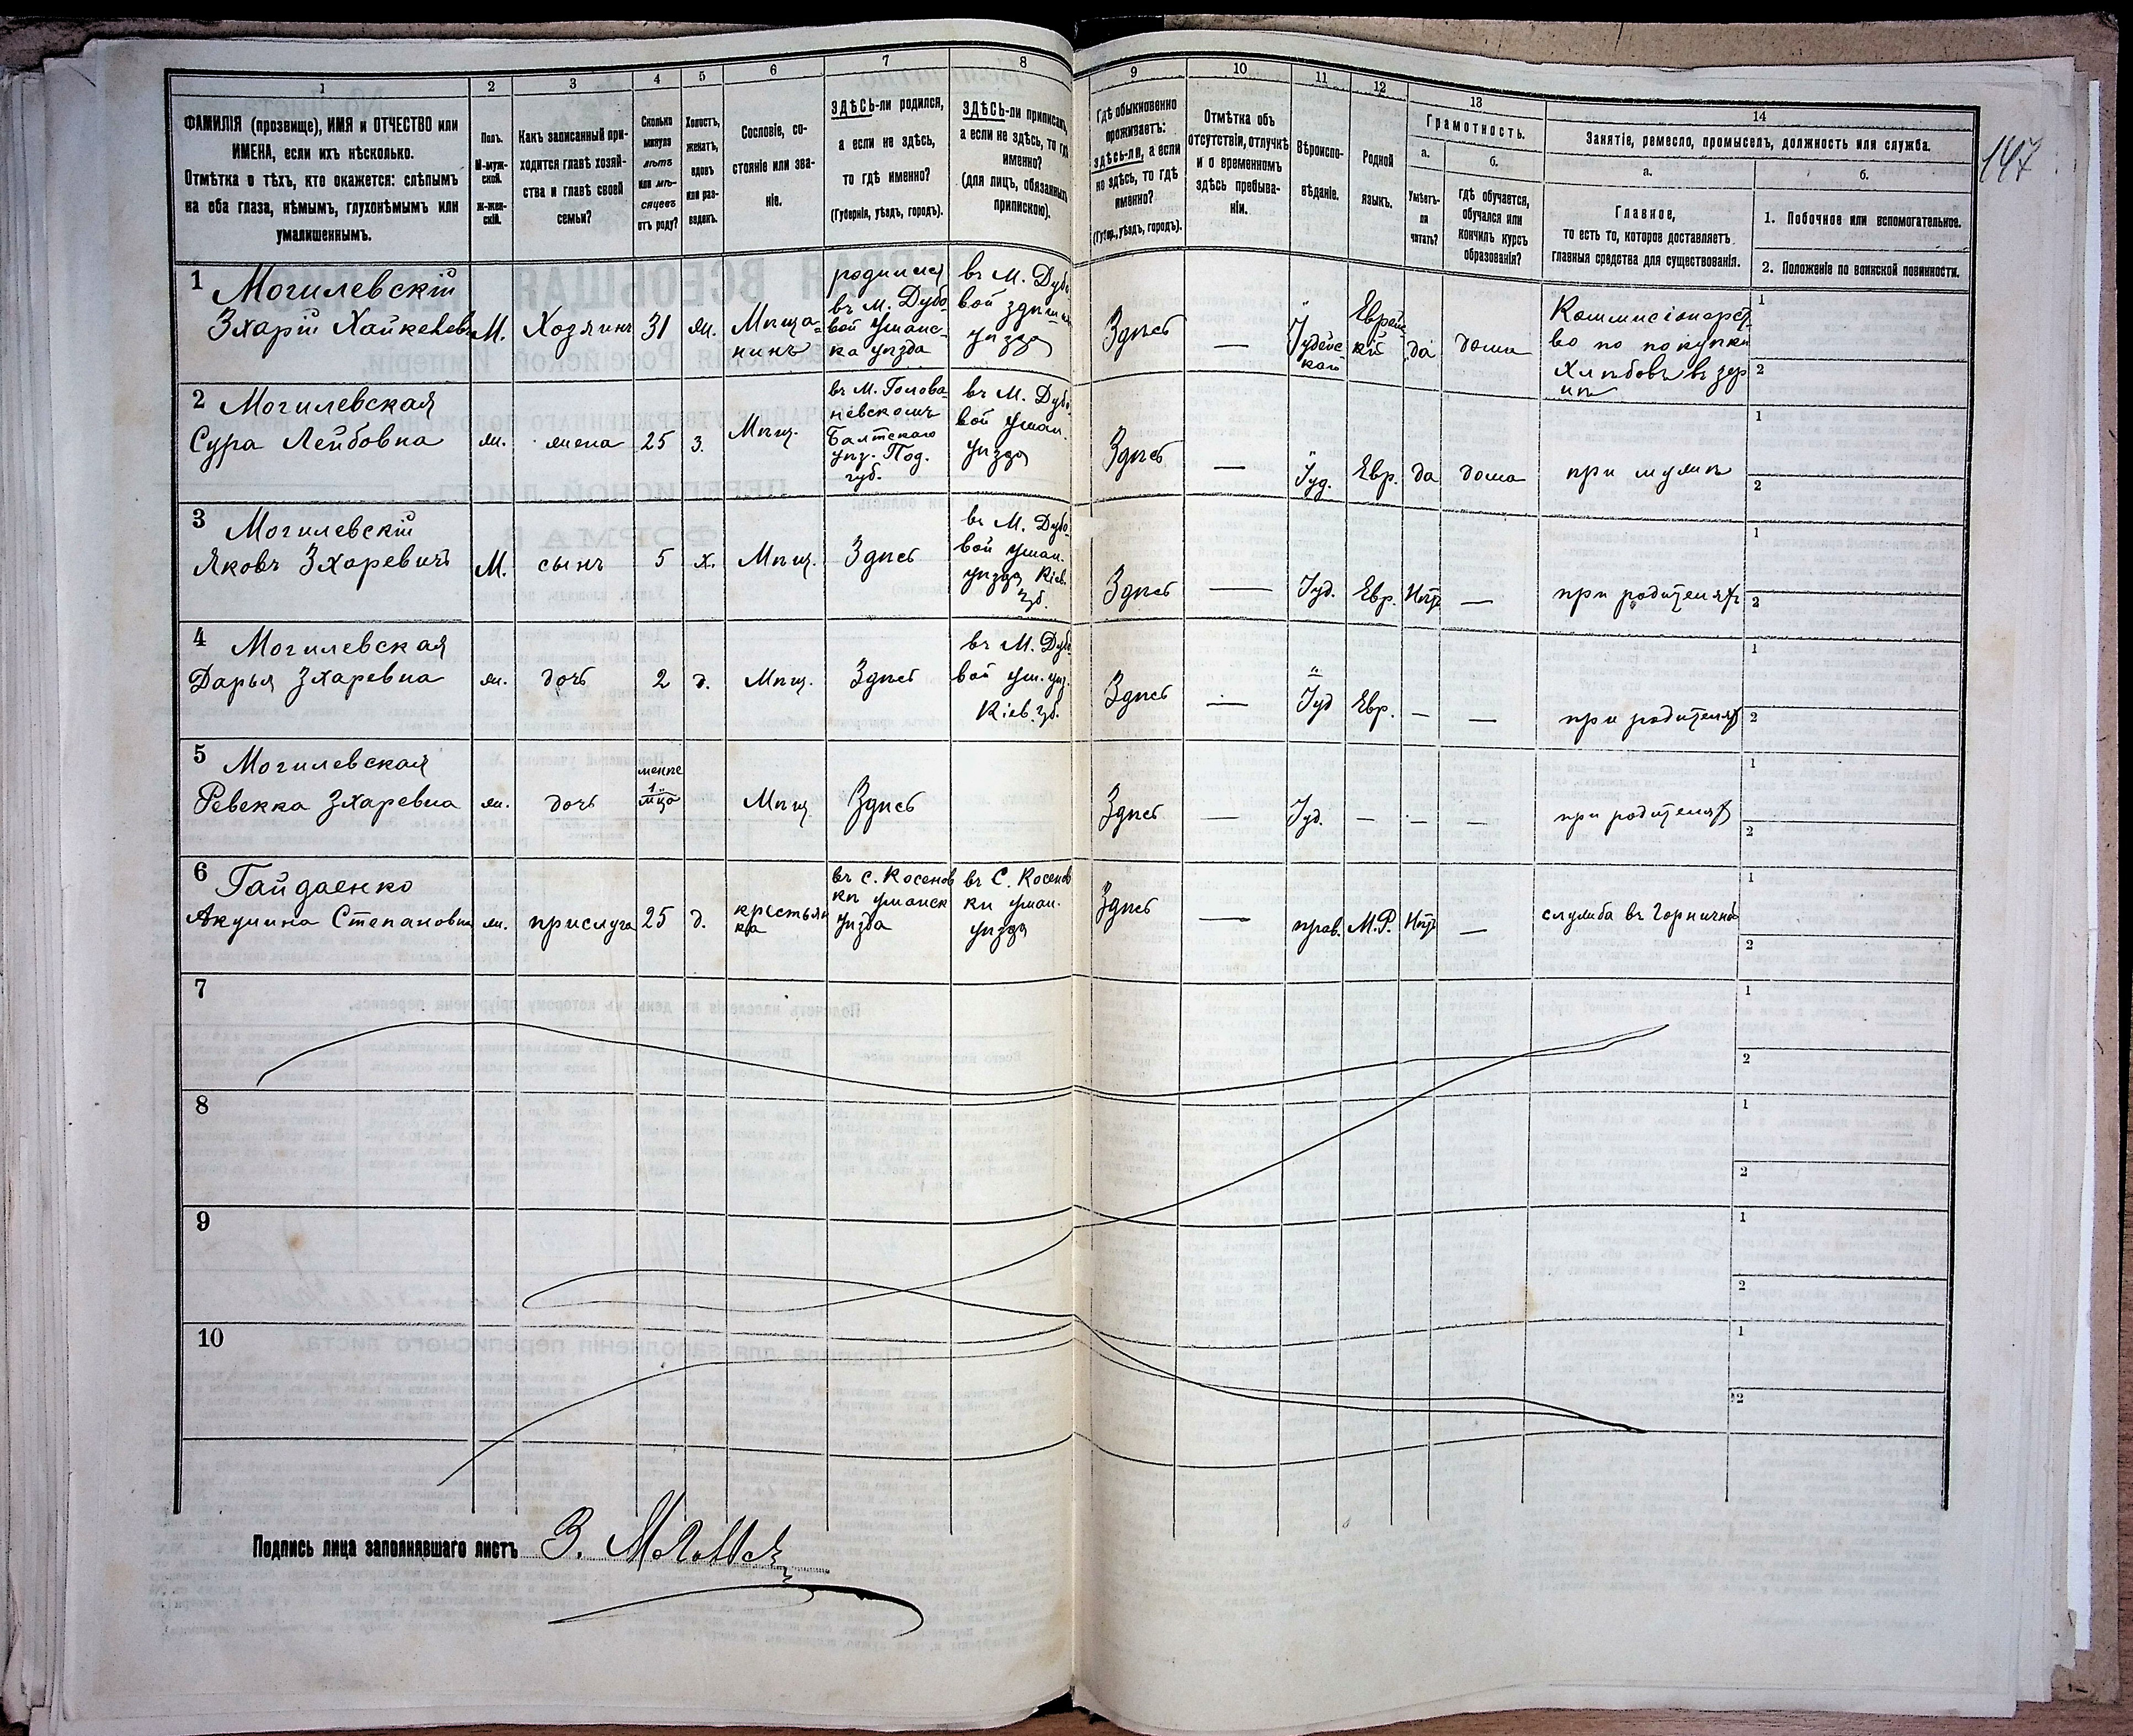 1
2
3
4
5
6
7
8
9
10
11
12
13
14
147
ФАМИЛІЯ (прозвище), ИМЯ и ОТЧЕСТВО или
ИМЕНА, если ихъ нѣсколько.
Отмѣтка о тѣхъ, кто окажется: слѣпымъ
на оба глаза, нѣмымъ, глухонѣмымъ или
умалишеннымъ.
Полъ.
М-муж-
ской.
ж-жен-
скій.
Какъ записанный при-
ходится главѣ хозяй-
ства и главѣ своей
семьи?
Сколько
минуло
лѣтъ
или мѣ-
сяцевъ
отъ роду?
Холостъ,
женатъ,
вдовъ
или раз-
веденъ.
Сословіе, со-
стояніе или зва-
ніе.
ЗДѢСЬ-ли родился,
а если не здѣсь,
то гдѣ именно?
(Губернія, уѣздъ, городъ).
ЗДѢСЬ-ли приписанъ,
а если не здѣсь, то гдѣ
именно?
(для лицъ, обязанныхъ
припискою).
Гдѣ обыкновенно
проживаетъ:
здѣсь-ли, а если
не здѣсь, то гдѣ
именно?
(Губер., уѣздъ, городъ).
Отмѣтка объ
отсутствіи, отлучкѣ
и о временномъ
здѣсь пребыва-
ніи.
Вѣроиспо-
вѣданіе.
Родной
языкъ.
Грамотность.
а.
Умѣетъ-
ли
читать?
б.
гдѣ обучается,
обучался или
кончилъ курсъ
образованія?
Занятіе, ремесло, промыселъ, должность или служба.
а.
Главное,
то есть то, которое доставляетъ
главныя средства для существованія.
б.
1. Побочное или вспомогательное.
2. Положеніе по воинской повинности.
1
Могилевскій
Зхарій Хайкелевъ
М.
Хозяинъ
31
ж.
Мѣща-
нинъ
родился
въ М. Дубо-
вой уманс-
ка уѣзда
въ М. Дубо
вой здѣш
уѣзда
Здѣсь
—
Іудейс-
кой
Еврейс
кій
да
дома
Коммисіонерст
во по покупки
Хлѣбовъ въ зер
нѣ
1
2
2
Могилевская
Сура Лейбовна
ж.
жена
25
з.
Мѣщ.
въ М. Голова-
невскомъ
Балтскаго
уѣз. Под.
губ.
въ М. Дубо-
вой уман.
уѣзда
Здѣсь
—
Іуд.
Евр.
да
дома
при мужѣ
1
2
3
Могилевскій
Яковъ Зхаревичъ
М.
сынъ
5
х.
Мѣщ.
Здѣсь
въ М. Дубо-
вой уман.
уѣзда Кіев.
губ.
Здѣсь
—
Іуд.
Евр.
Нѣтъ
—
при родителяхъ
1
2
4
Могилевская
Дарья Зхаревна
ж.
дочь
2
д.
Мѣщ.
Здѣсь
въ М. Дубо-
вой ум. уѣз.
Кіев. губ.
Здѣсь
—
Іуд
Евр.
—
—
при родителях
1
2
5
Могилевская
Ревекка Зхаревна
ж.
дочь
менѣе
1
мца
Мѣщ
Здѣсь
Здѣсь
—
Іуд.
—
—
—
при родителях
1
2
6
Гайдаенко
Акулина Степановна
ж.
прислуга
25
д.
крестьян
ка
въ с. Косенов
кѣ уманск
уѣзда
въ С. Косенов
кѣ уман.
уѣзда
Здѣсь
—
прав.
М.Р.
Нѣтъ
—
служба въ Горничной
1
2
7
1
2
8
1
2
9
1
2
10
1
2
Подпись лица заполнявшаго листъ
З.